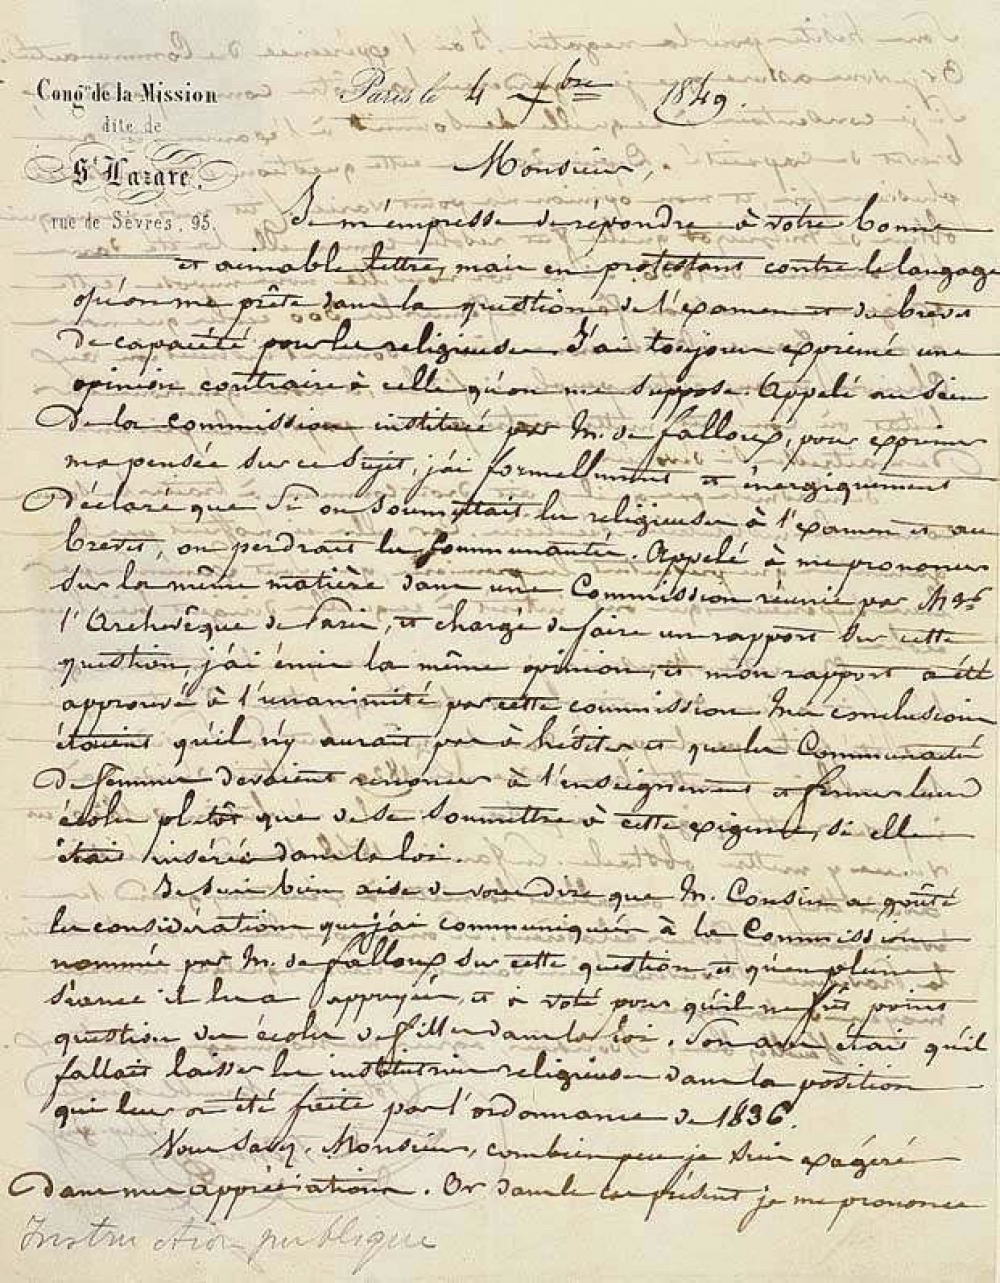 Congon de la Mission
dite de
St Lazare.
rue de Sèvres, 95.
Paris le 4 Xbre 1849.
Monsieur,
Je m'empresse de répondre à votre bonne
et aimable lettre, mais en protestant contre le langage
qu'on me prête dans la question de l'examen et du brevet
de capacité pour les religieuses. J'ai toujours exprimé une
opinion contraire à celle qu'on me suppose. Appelé au sein
de la commission instituée par M. de falloux, pour exprimer
ma pensée sur ce sujet, j'ai formellement et énergiquement
déclaré que si on soumettait les religieuses à l'examen et au
brevet, on perdrait les Communautés. Appelé à me prononcer
sur la même matière dans une Commission réunie par Mgr
l'Archevêque de Paris, et chargé de faire un rapport sur cette
question, j'ai émis la même opinion, et mon rapport a été
approuvé à l'unanimité par cette commission. Mes conclusions
étaient qu'il n'y aurait pas à hésiter et que les Communautés
de femmes devaient renoncer à l'enseignement et fermer leurs
écoles plutôt que de se soumettre à cette exigence, si elle
était insérée dans la loi.
Je suis bien aise de vous dire que M. Cousin a goûté
les considérations que j'ai communiquées à la Commission
nommée par M. de falloux sur cette question, et qu'en pleine
séance il les a appuyées, et a voté pour qu'il ne fût point
question des écoles de filles dans la loi. Son avis était qu'il
fallait laisser les institutrices religieuses dans la position
qui leur a été faite par l'ordonnance de 1836.
Vous savez, Monsieur, combien peu je suis exagéré
dans mes appréciations. Or dans le cas présent je me prononce
Instruction publique